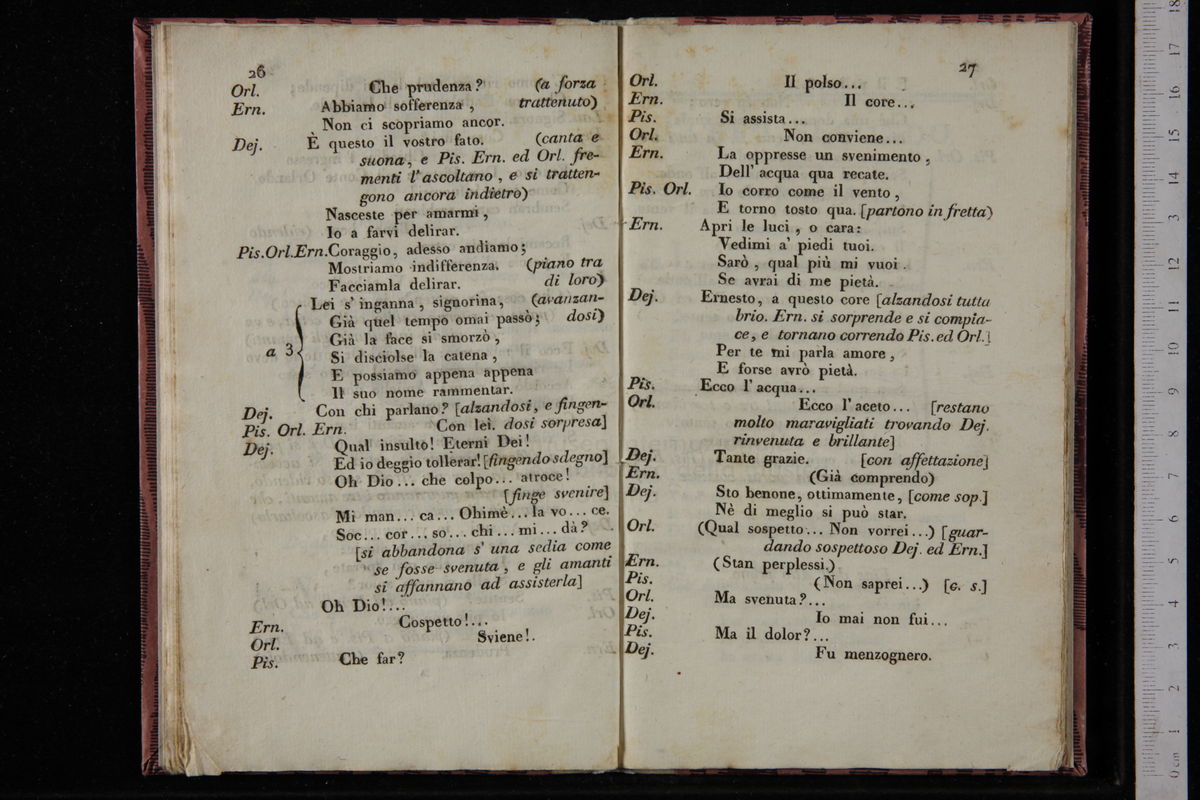 26
Orl. Che prudenza? (a forza
Ern. Abbiamo sofferenza, trattenuto)
Non ci scopriamo ancor.
Dej. È questo il vostro fato. (canta e
suona, e Pis. Ern. ed Orl. fre-
menti l'ascoltano, e si tratten-
gono ancora indietro)
Nasceste per amarmi,
Io a farvi delirar.
Pis. Orl. Ern. Coraggio, adesso andiamo;
Mostriamo indifferenza. (piano tra
Facciamla delirar. di loro)
Lei s'inganna, signorina, (avanzan-
Già quel tempo omai passò; dosi)
Già la face si smorzò,
a 3 Si disciolse la catena,
E possiamo appena appena
Il suo nome rammentar.
Dej. Con chi parlano? [alzandosi, e fingen-
Pis. Orl. Ern. Con lei. dosi sorpresa]
Dej. Qual insulto! Eterni Dei!
Ed io deggio tollerar! [fingendo sdegno]
Oh Dio... che colpo... atroce!
[finge svenire]
Mi man... ca... Ohimè... la vo... ce.
Soc... cor... so... chi... mi... dà?
[si abbandona s'una sedia come
se fosse svenuta, e gli amanti
si affannano ad assisterla]
Oh Dio!...
Ern. Cospetto!...
Orl. Sviene!.
Pis. Che far?
27
Orl. Il polso...
Ern. Il core...
Pis. Si assista...
Orl. Non conviene...
Ern. La oppresse un svenimento,
Dell'acqua qua recate.
Pis. Orl. Io corro come il vento,
E torno tosto qua. [partono in fretta)
Ern. Apri le luci, o cara:
Vedimi a' piedi tuoi.
Sarò, qual più mi vuoi.
Se avrai di me pietà.
Dej. Ernesto, a questo core [alzandosi tutta
brio. Ern. si sorprende e si compia-
ce, e tornano correndo Pis. ed Orl.]
Per te mi parla amore,
E forse avrò pietà.
Pis. Ecco l'acqua...
Orl. Ecco l'aceto... [restano
molto maravigliati trovando Dej.
rinvenuta e brillante]
Dej. Tante grazie. [con affettazione]
Ern. (Già comprendo)
Dej. Sto benone, ottimamente, [come sop.]
Nè di meglio si può star.
Orl. (Qual sospetto... Non vorrei...) [guar-
dando sospettoso Dej. ed Ern.]
Ern. (Stan perplessi.)
Pis. (Non saprei...) [c. s.]
Orl. Ma svenuta?...
Dej. Io mai non fui...
Pis. Ma il dolor?...
Dej. Fu menzognero.
0 cm 1 2 3 4 5 6 7 8 9 10 11 12 13 14 15 16 17 18